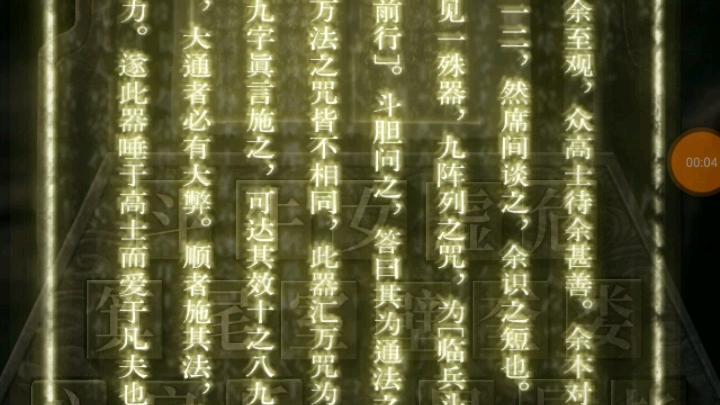 余至观，众高士待余甚善。余本对
一二，然席间谈之，余识之短也。
见一殊器，九阵列之咒，为「临兵斗
前行」。斗胆问之，答曰其为通法之
万法之咒皆不相同，此器汇万咒为
九字真言施之，可达其效十之八九
，大通者必有大弊。顺者施其法，
力。遂此器唾于高士而爱于凡夫也
斗 牛 女 虚 危
箕 尾 室 壁 奎 娄
00:04